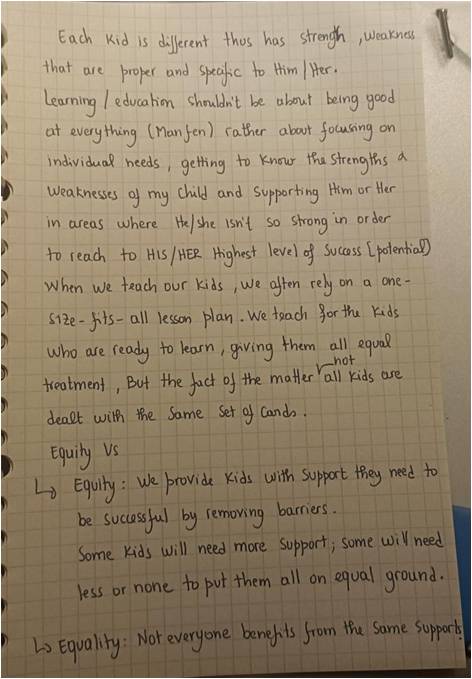 Each kid is different thus has strength, weakness
that are proper and specific to Him/Her.
Learning/education shouldn't be about being good
at everything (Manfen) rather about focusing on
individual needs, getting to know the strengths &
weaknesses of my child and supporting Him or Her
in areas where He/she isn't so strong in order
to reach to HIS/HER Highest level of success [potential)
When we teach our kids, we often rely on a one-
size-fits-all lesson plan. We teach for the kids
who are ready to learn, giving them all equal
treatment, But the fact of the matter not all kids are
dealt with the same set of cards.
Equity Vs
↳ Equity: We provide kids with support they need to
be successful by removing barriers.
Some kids will need more support; some will need
less or none to put them all on equal ground.
↳ Equality: Not everyone benefits from the same supports.